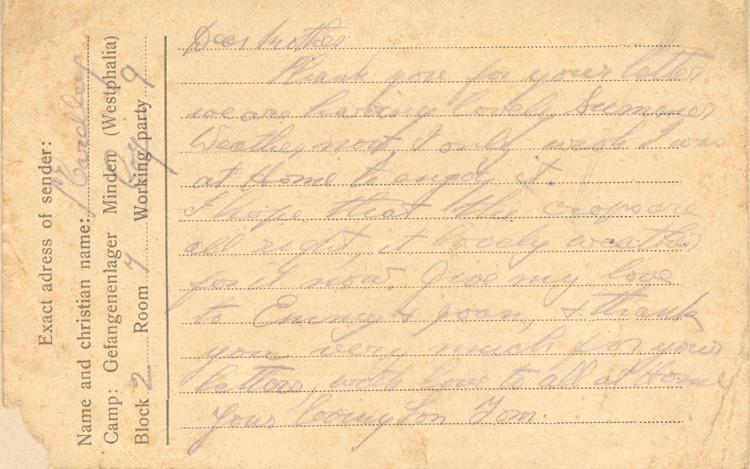 Exact adress of sender:
Name and christian name:
Camp: Gefangenenlager Minden (Westphalia)
Block 2 Room 7 Working party 9
Dear Mother
Thank you for your letter
we are having lovely Summer
Weather now, I only wish I was
at Home to enjoy it.
I hope that the crops are
all right, it lovely weather
for it now. Give my love
to Emmy & Joan, & thank
you very much for your
letters, with love to all at Home
Your loving Son Tom.